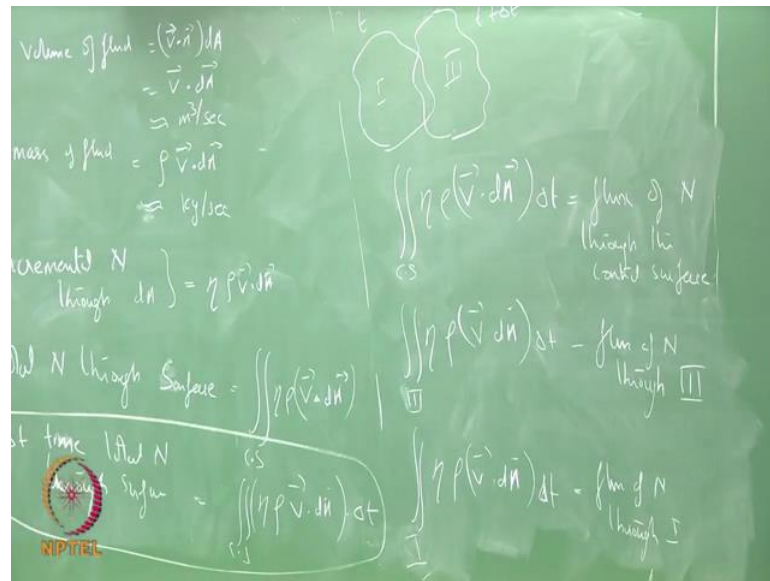 volume of fluid = (v⃗·n⃗) dA
= v⃗·dA⃗
≈ m³/sec
mass of fluid = ρ v⃗·dA⃗
≈ kg/sec
ncremental N
through dA } = η ρ v⃗·dA⃗
N through Surface = ∬ η ρ (v⃗·dA⃗)
C.S
time total N
= ∬ (η ρ v⃗·dA⃗)·Δt
C.S
NPTEL
t
t+Δt
I
III
∬ η ρ (v⃗·dA⃗) Δt = flux of N
CS
through the
control surface
∬ η ρ (v⃗·dA⃗) Δt – flux of N
III
through III
∫ η ρ (v⃗·dA⃗) Δt = flux of N
I
through I